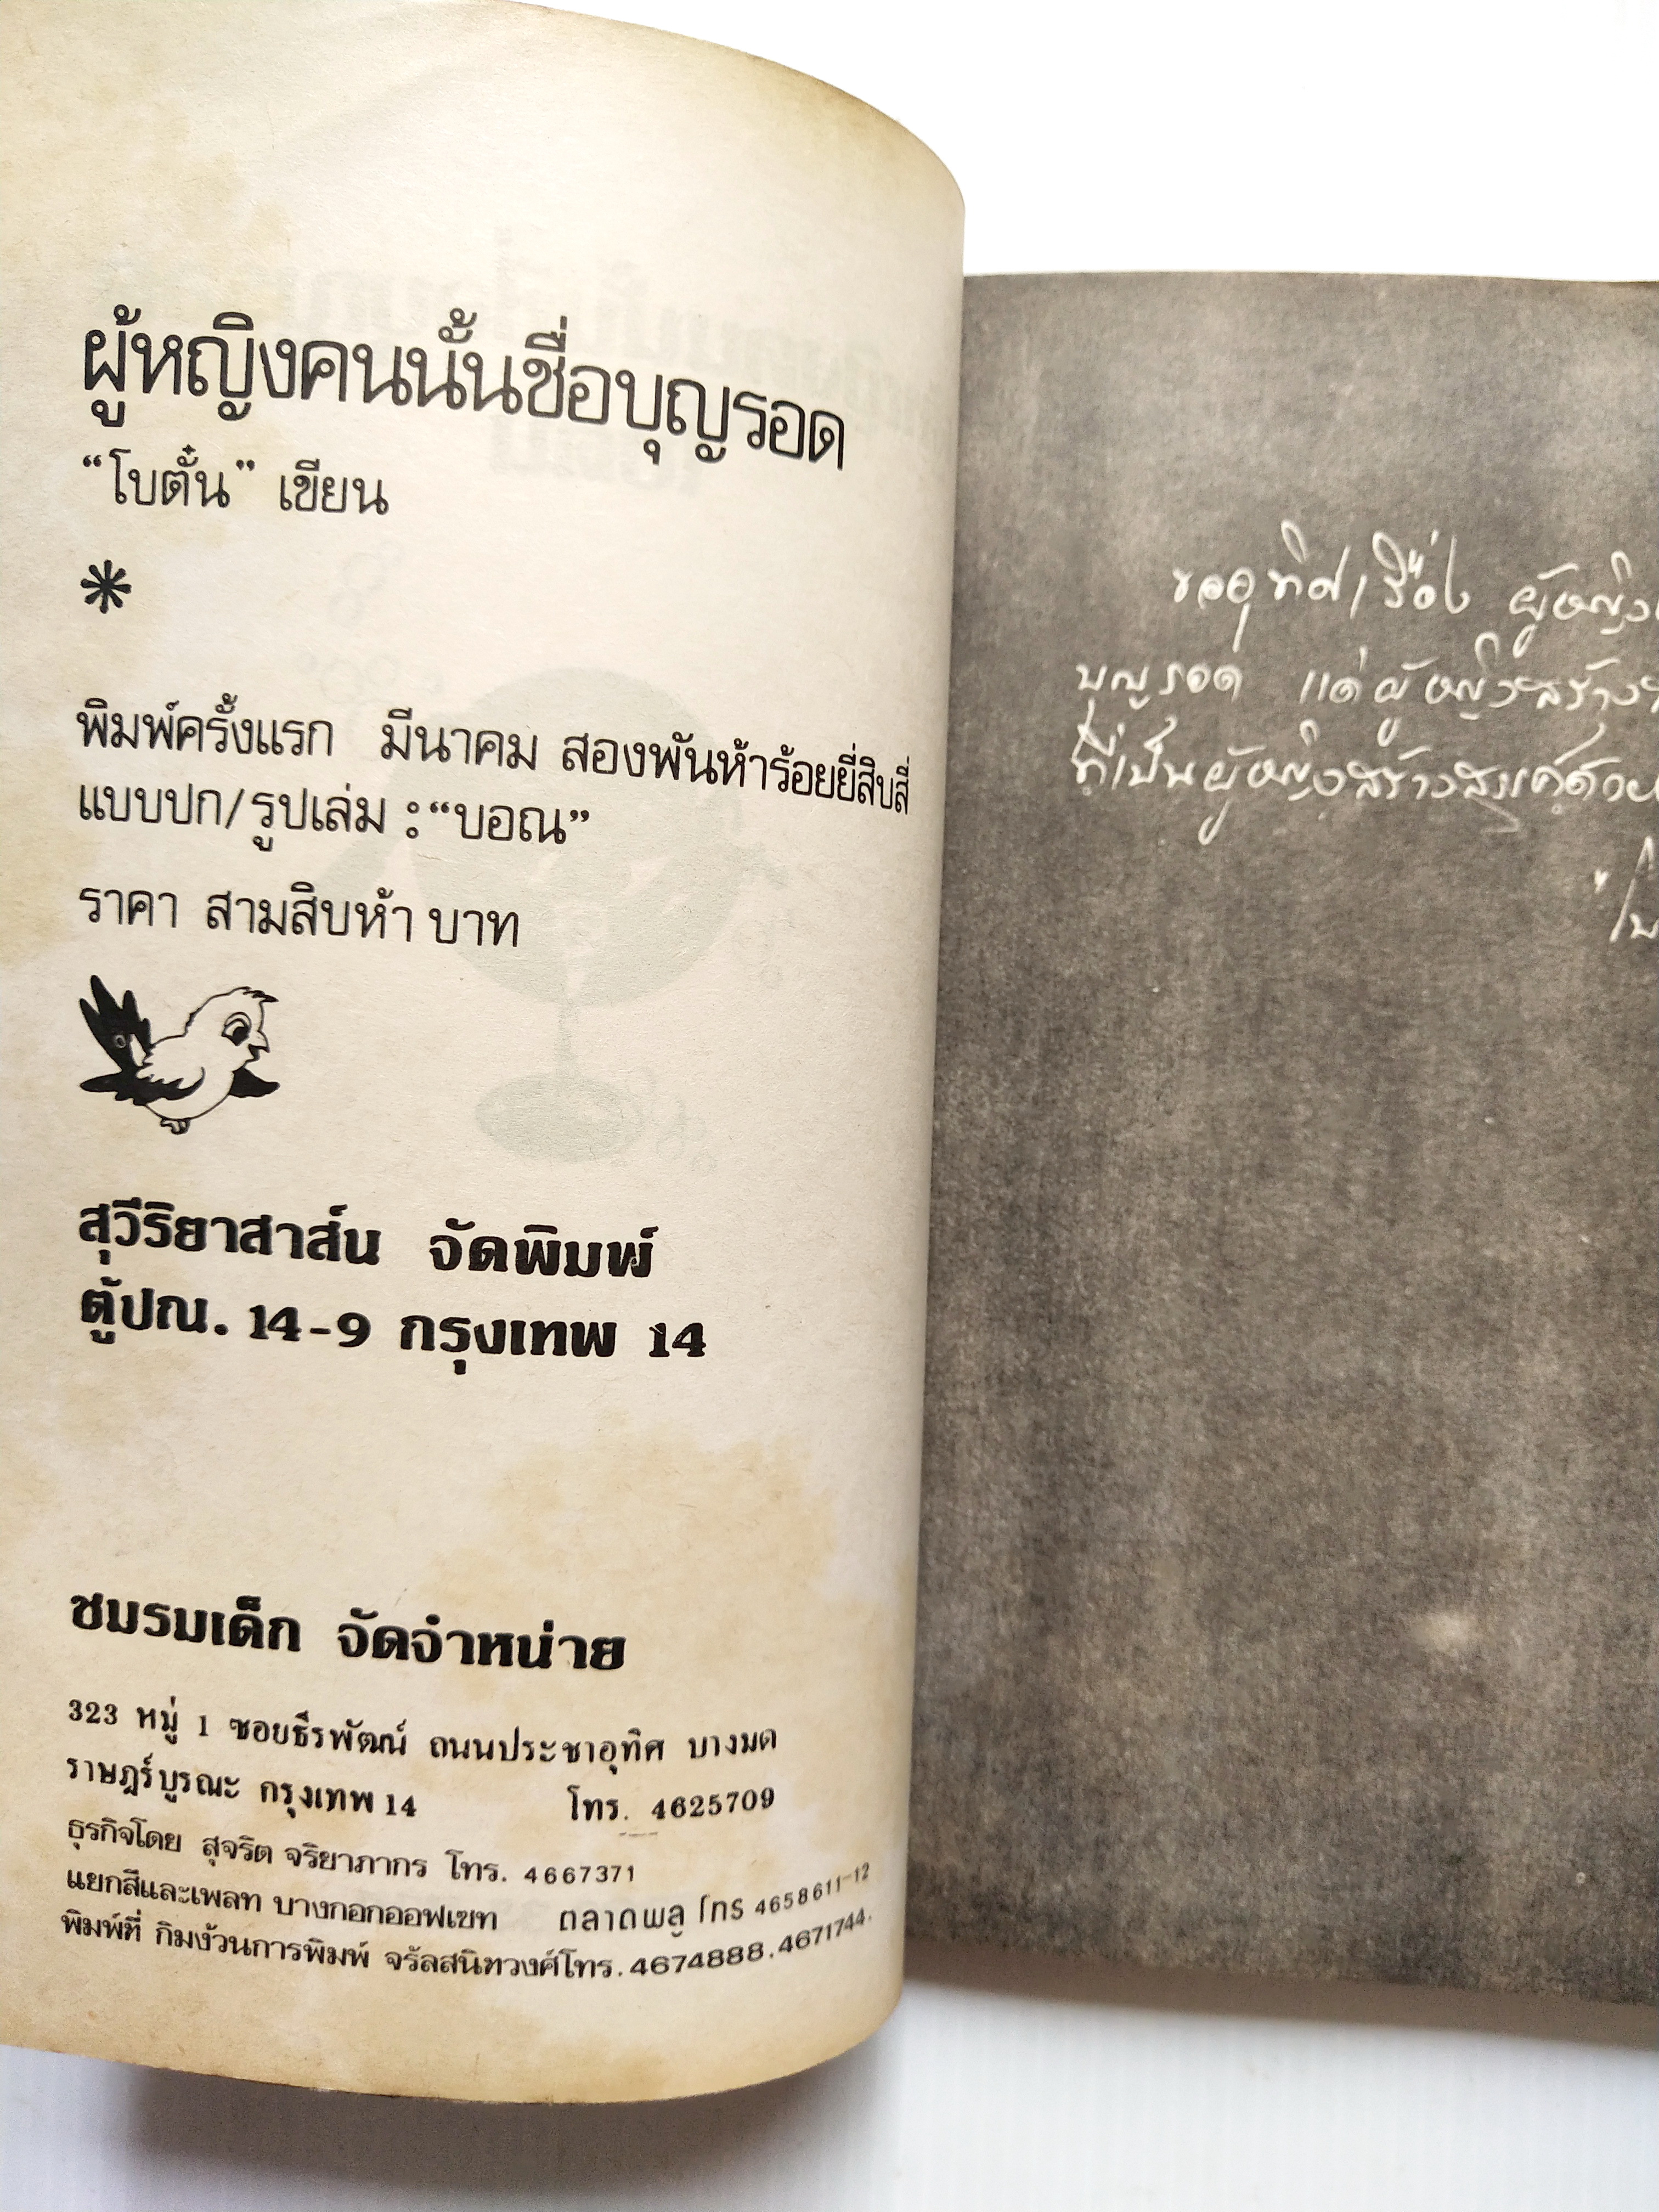 ผู้หญิงคนนั้นชื่อบุญรอด
“โบตั๋น” เขียน
*
พิมพ์ครั้งแรก มีนาคม สองพันห้าร้อยยี่สิบสี่
แบบปก/รูปเล่ม : “บอณ”
ราคา สามสิบห้า บาท
สุวีริยาสาส์น จัดพิมพ์
ตู้ปณ. 14-9 กรุงเทพ 14
ชมรมเด็ก จัดจำหน่าย
323 หมู่ 1 ซอยธีรพัฒน์ ถนนประชาอุทิศ บางมด
ราษฎร์บูรณะ กรุงเทพ 14 โทร. 4625709
ธุรกิจโดย สุจริต จริยาภากร โทร. 4667371
แยกสีและเพลท บางกอกออฟเซท ตลาดพลู โทร 4658611-12
พิมพ์ที่ กิมง้วนการพิมพ์ จรัลสนิทวงศ์โทร. 4674888. 4671744.
ขออุทิศเรื่อง ผู้หญิง
บุญรอด แด่ผู้หญิงสร้าง
ที่เป็นผู้หญิงสร้างสรรค์ด้วย